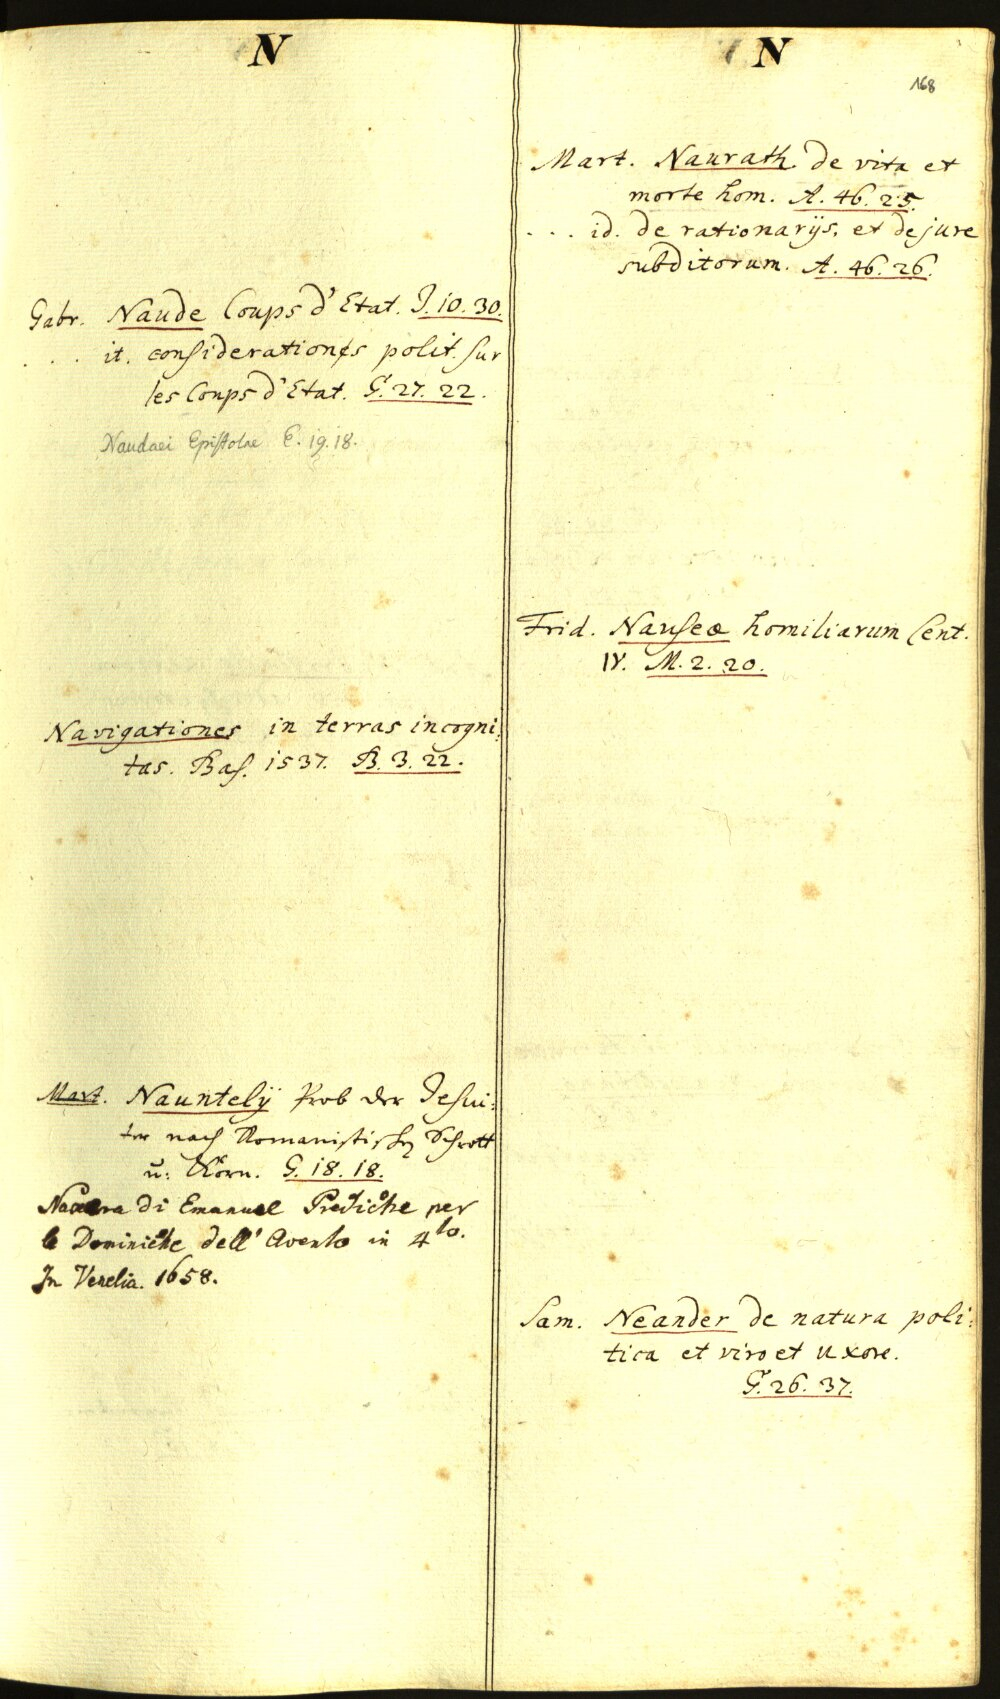 N
Gabr. Naude Coups d'Etat. J. 10. 30.
. . it. considerationes polit. sur
les Coups d'Etat. G. 27. 22.
Naudaei Epistolae E. 19. 18.
Navigationes in terras incogni:
tas. Bas. 1537. B. 3. 22.
Mart. Nauntelÿ Prob der Jesui:
ter nach Romanistischen Schrott
u: Korn. G. 18. 18.
di Emanuel Prediche per
le Dominiche dell' Avento in 4to.
In Venetia. 1658.
N
168
Mart. Naurath de vita et
morte hom. A. 46. 25.
. . . id. de rationarijs, et de jure
subditorum. A. 46. 26.
Frid. Nauseæ homiliarum Cent.
IV. M. 2. 20.
Sam. Neander de natura poli:
tica et viro et uxore.
G. 26. 37.